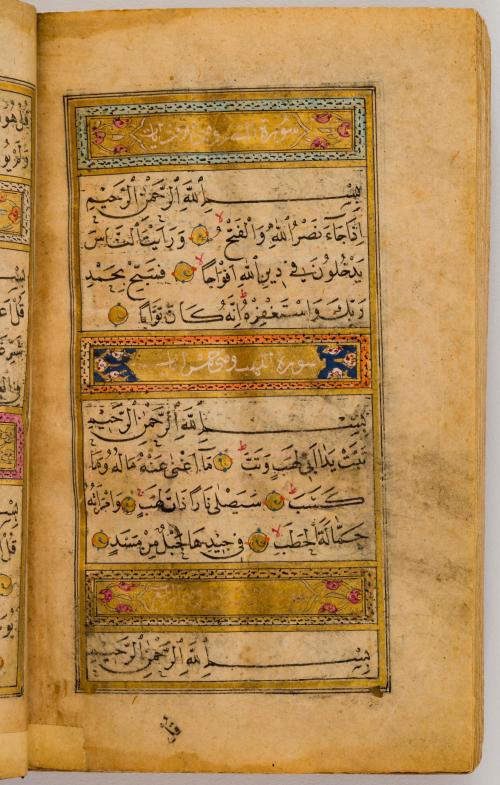 سورة
بِسْمِ ٱللَّهِ ٱلرَّحْمٰنِ ٱلرَّحِيمِ
اِذَا جَآءَ نَصْرُ اللّٰهِ وَالْفَتْحُ وَرَاَيْتَ النَّاسَ
يَدْخُلُونَ فِي دِينِ اللّٰهِ اَفْوَاجًا فَسَبِّحْ بِحَمْدِ
رَبِّكَ وَاسْتَغْفِرْهُ اِنَّهُ كَانَ تَوَّابًا
سورة اللهب وهي خمس ايات
بِسْمِ ٱللَّهِ ٱلرَّحْمٰنِ ٱلرَّحِيمِ
تَبَّتْ يَدَا اَبِي لَهَبٍ وَتَبَّ مَآ اَغْنٰى عَنْهُ مَالُهُ وَمَا
كَسَبَ سَيَصْلٰى نَارًا ذَاتَ لَهَبٍ وَامْرَاَتُهُ
حَمَّالَةَ الْحَطَبِ فِي جِيدِهَا حَبْلٌ مِنْ مَسَدٍ
بِسْمِ ٱللَّهِ ٱلرَّحْمٰنِ ٱلرَّحِيمِ
قل